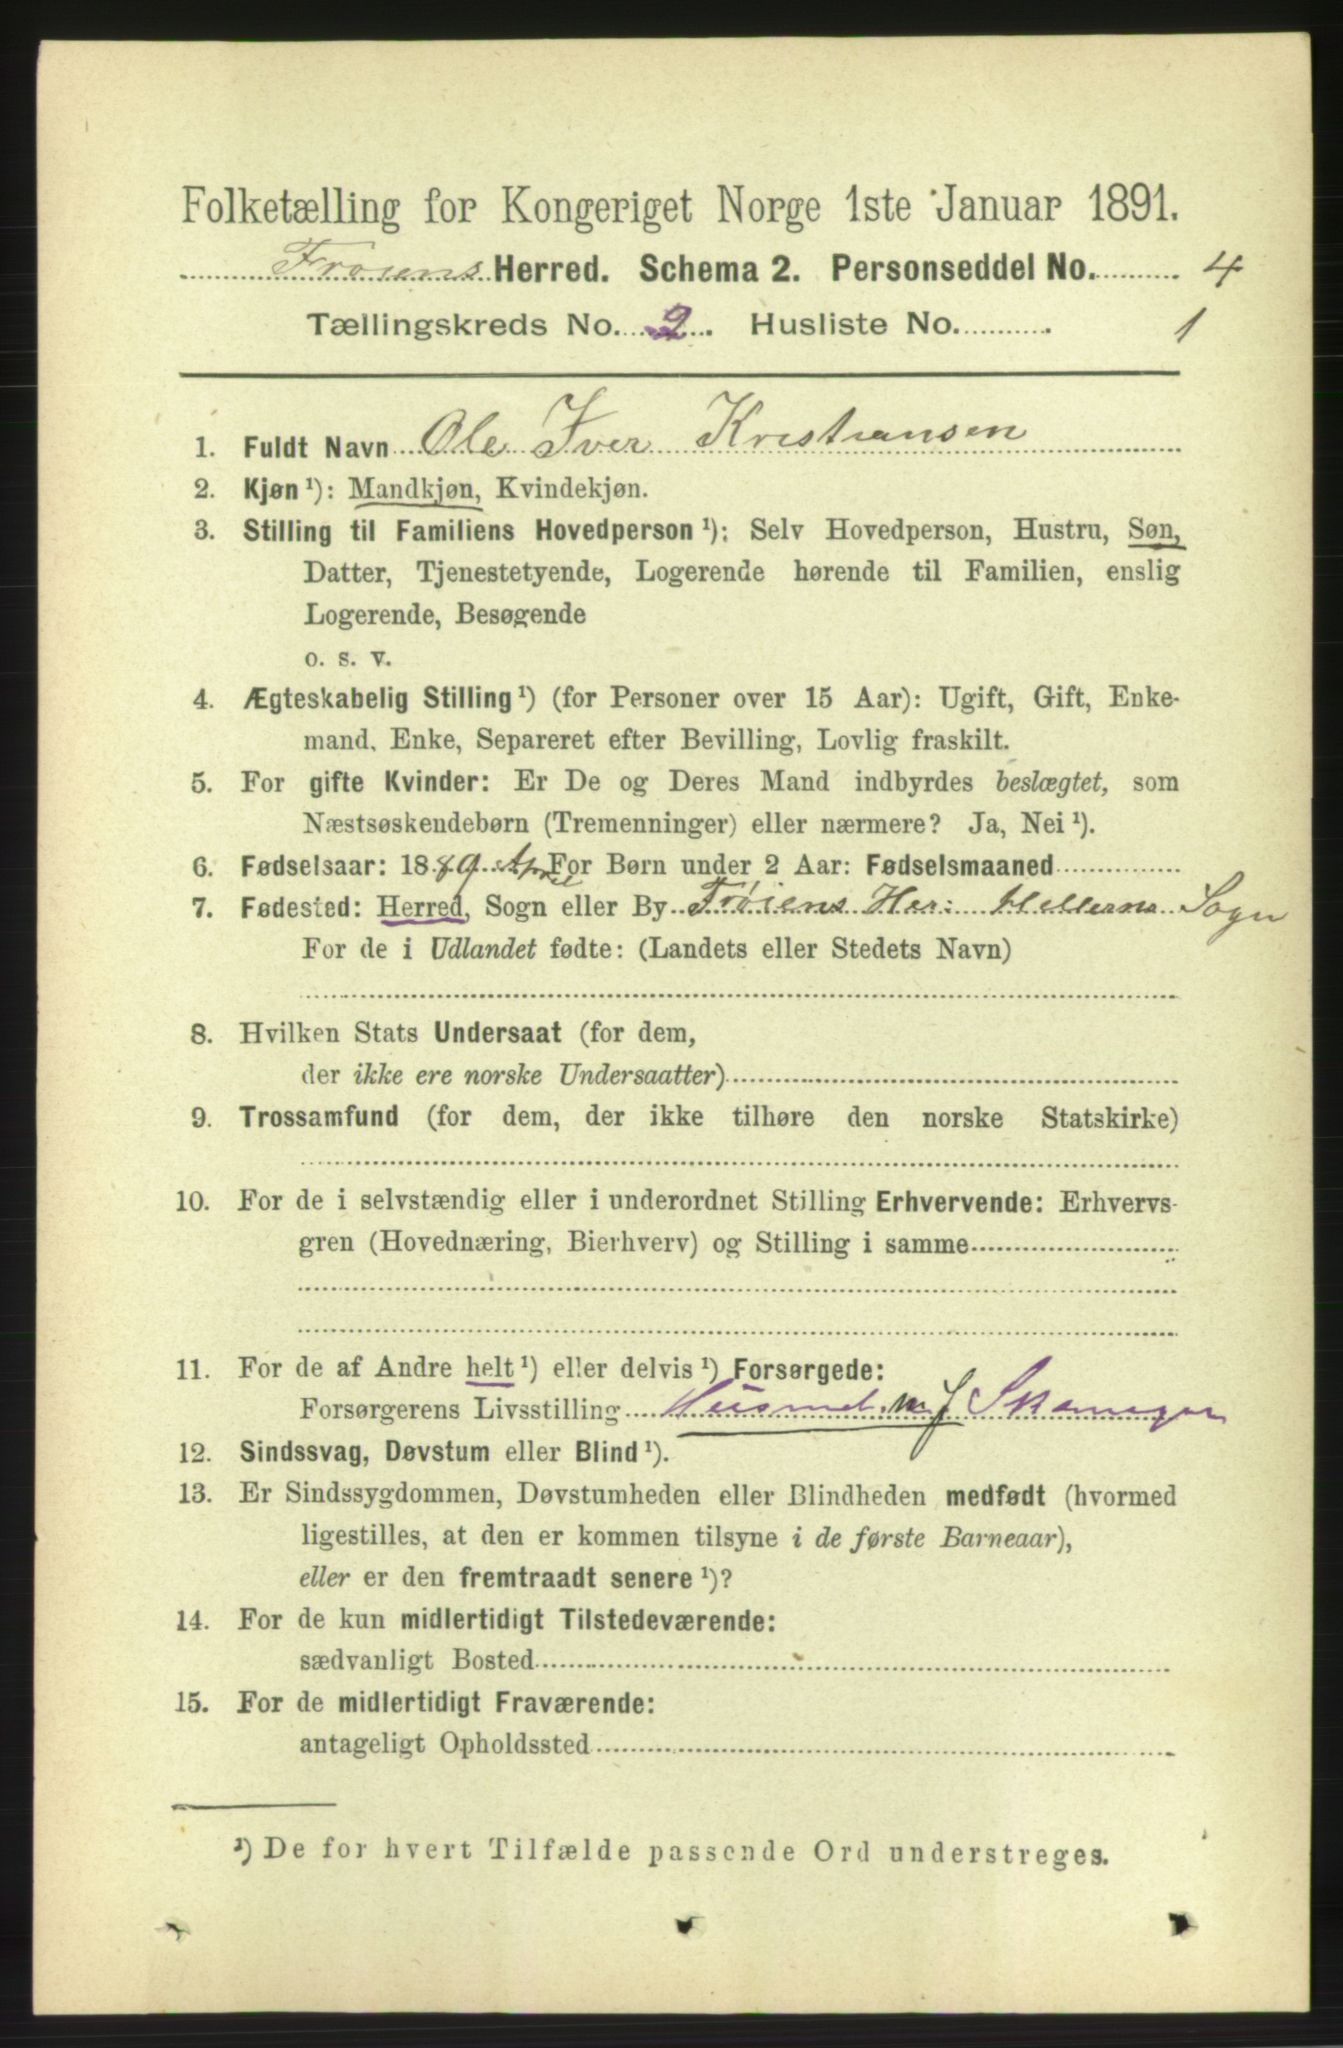 Folketælling for Kongeriget Norge 1ste Januar 1891.
Frøiens Herred. Schema 2. Personseddel No. 4
Tællingskreds No. 2. Husliste No. 1
1. Fuldt Navn Ole Iver Kristiansen
2. Kjøn ¹): Mandkjøn, Kvindekjøn.
3. Stilling til Familiens Hovedperson ¹): Selv Hovedperson, Hustru, Søn,
Datter, Tjenestetyende, Logerende hørende til Familien, enslig
Logerende, Besøgende
o. s. v.
4. Ægteskabelig Stilling ¹) (for Personer over 15 Aar): Ugift, Gift, Enke-
mand, Enke, Separeret efter Bevilling, Lovlig fraskilt.
5. For gifte Kvinder: Er De og Deres Mand indbyrdes beslægtet, som
Næstsøskendebørn (Tremenninger) eller nærmere? Ja, Nei ¹).
6. Fødselsaar: 1889. April For Børn under 2 Aar: Fødselsmaaned
7. Fødested: Herred, Sogn eller By Frøiens Her: Sogn
For de i Udlandet fødte: (Landets eller Stedets Navn)
8. Hvilken Stats Undersaat (for dem,
der ikke ere norske Undersaatter)
9. Trossamfund (for dem, der ikke tilhøre den norske Statskirke)
10. For de i selvstændig eller i underordnet Stilling Erhvervende: Erhvervs-
gren (Hovednæring, Bierhverv) og Stilling i samme
11. For de af Andre helt ¹) eller delvis ¹) Forsørgede:
Forsørgerens Livsstilling Husmd. m j
12. Sindssvag, Døvstum eller Blind ¹).
13. Er Sindssygdommen, Døvstumheden eller Blindheden medfødt (hvormed
ligestilles, at den er kommen tilsyne i de første Barneaar),
eller er den fremtraadt senere ¹)?
14. For de kun midlertidigt Tilstedeværende:
sædvanligt Bosted
15. For de midlertidigt Fraværende:
antageligt Opholdssted
¹) De for hvert Tilfælde passende Ord understreges.